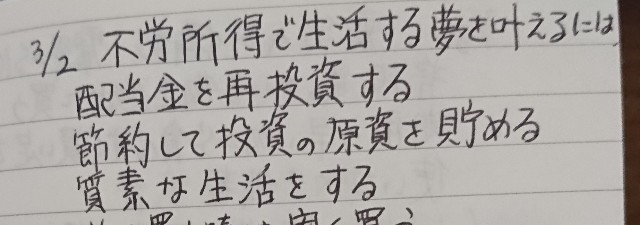 3/2 不労所得で生活する夢を叶えるには
配当金を再投資する
節約して投資の原資を貯める
質素な生活をする